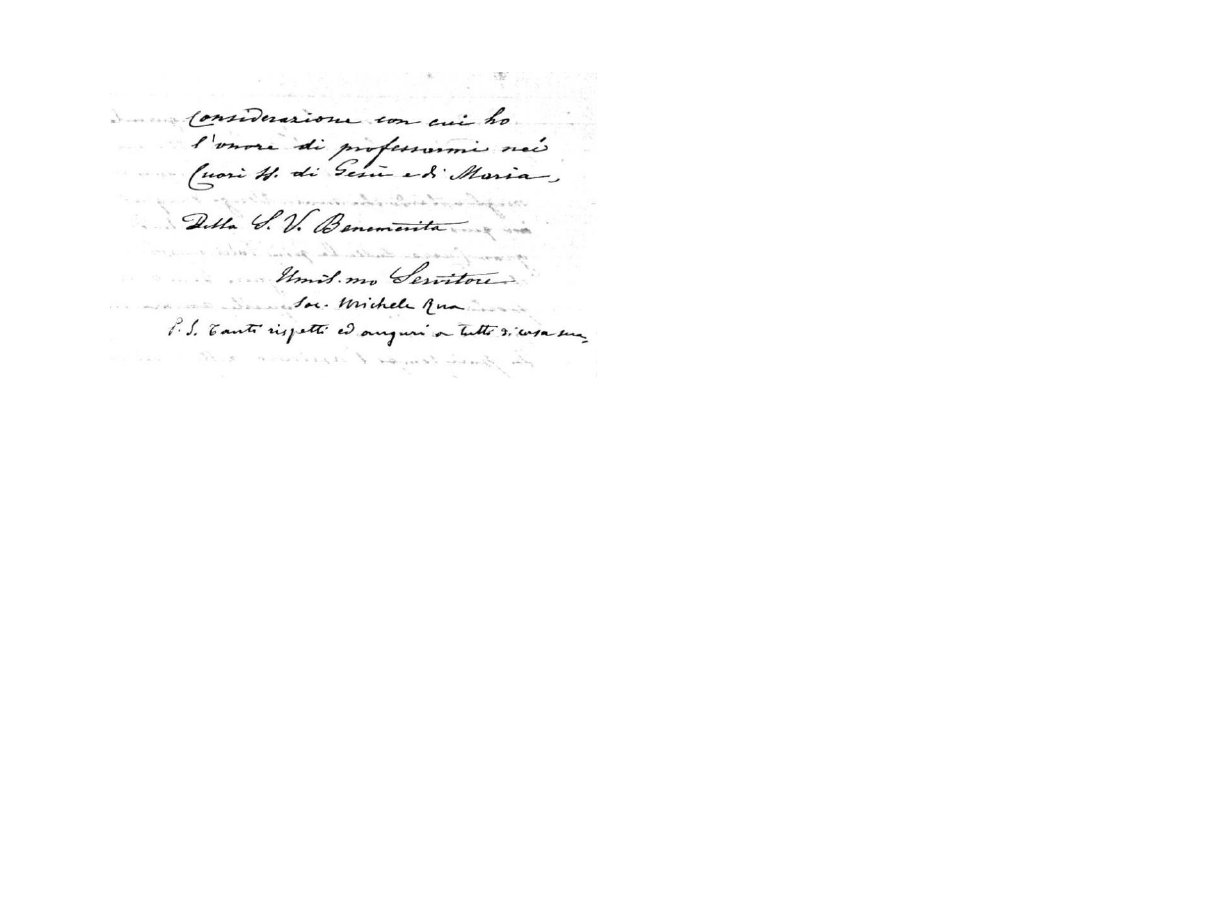 Considerazione con cui ho
l'onore di professarmi nei
Cuori SS. di Gesù e di Maria,
Della S. V. Benemerita
Umil.mo Servitore
Sac. Michele Rua
P. S. Tanti rispetti ed auguri a tutti di casa sua,